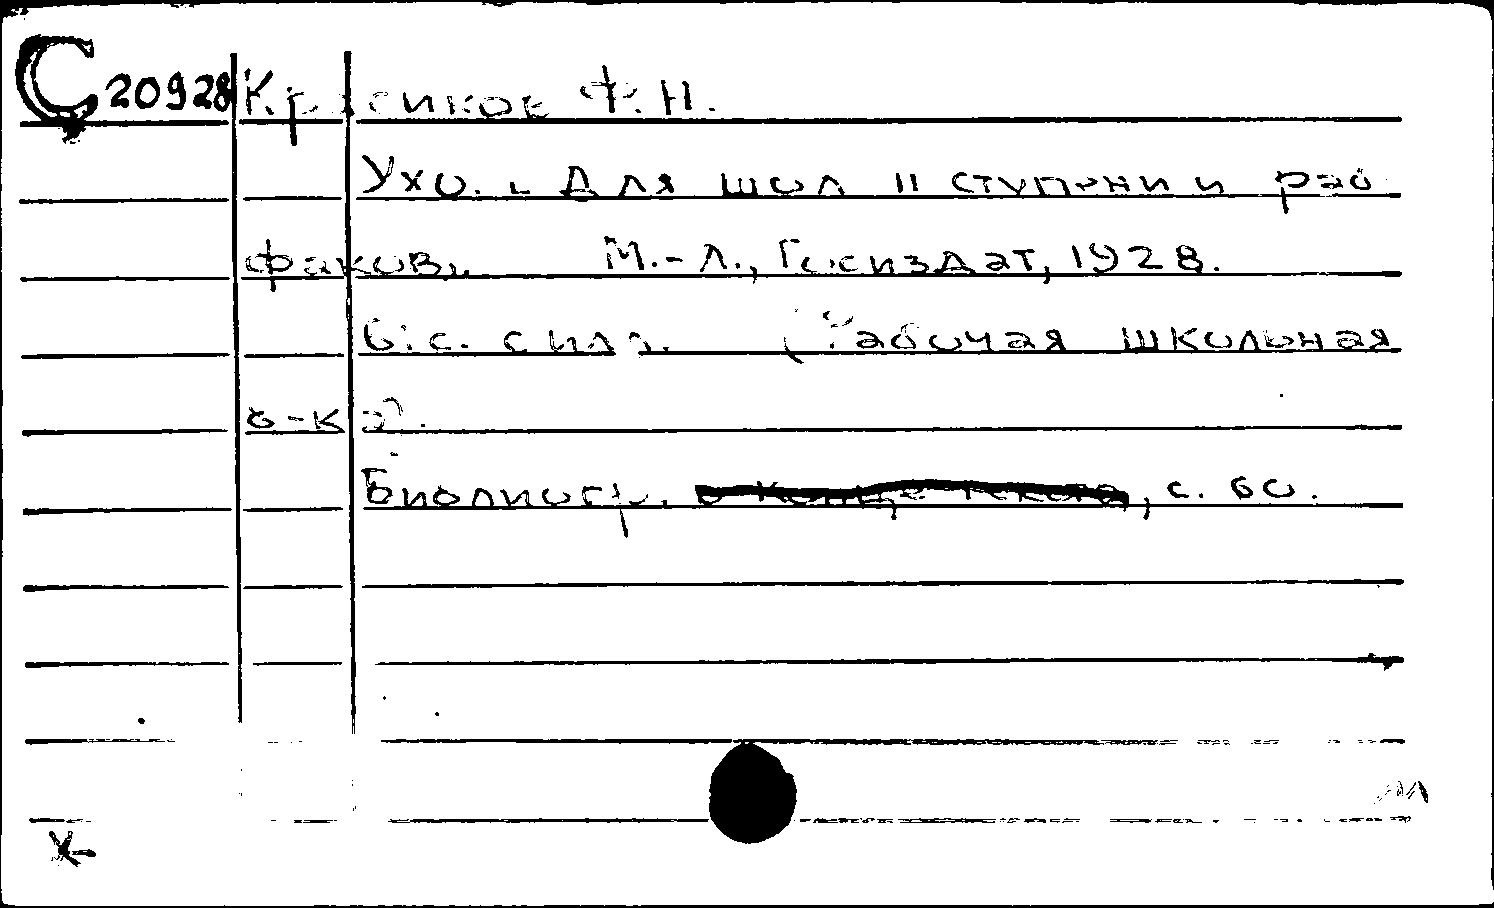 С 20928 Красиков Ф.Н.
Ухо. Для школ II ступени и раб
факов. М.-Л., Госиздат, 1928.
с илл. (Рабочая школьная
б-ка).
Библиогр. в конце текста, с. 60.